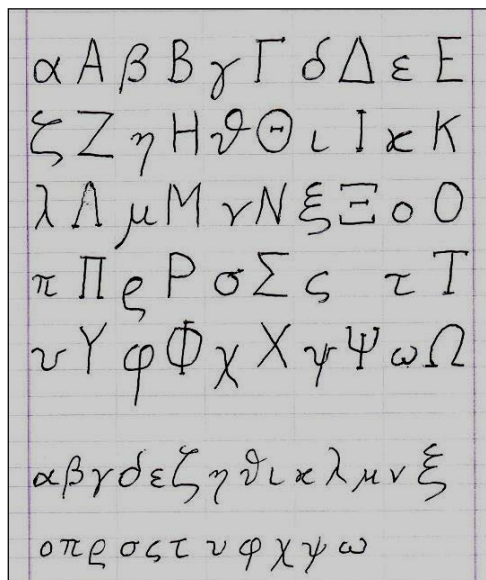 α Α β Β γ Γ δ Δ ε Ε
ζ Ζ η Η ϑ Θ ι Ι ϰ Κ
λ Λ μ Μ ν Ν ξ Ξ ο Ο
π Π ρ Ρ σ Σ ς τ Τ
υ Υ φ Φ χ Χ ψ Ψ ω Ω
α β γ δ ε ζ η ϑ ι ϰ λ μ ν ξ
ο π ρ σ ς τ υ φ χ ψ ω